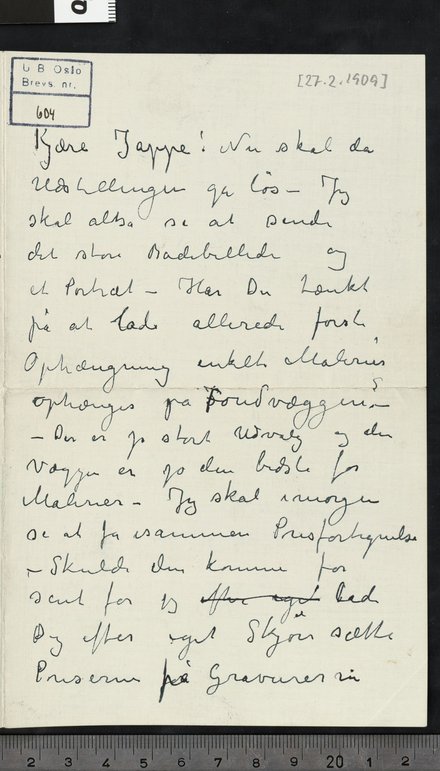 U B Oslo
Brevs. nr.
604
[27.2.1909]
Kjære Jappe! Nu skal da
Udstillingen gå løs – Jeg
skal altså se at sende
det store Badebillede og
et Portræt – Har Du tænkt
på at lade allerede første
Ophængning enkelte Malerier
ophænges på Fondvæggen? –
– Der er jo stort Udvalg og den
Væggen er jo den bedste for
Malerier – Jeg skal imorgen
se at få isammen Prisfortegnelse
– Skulde den komme for
sent før jeg efter eget lade
Dig efter eget Skjøn sætte
Priserne på Gravurerne
2 3 4 5 6 7 8 9 20 1 2